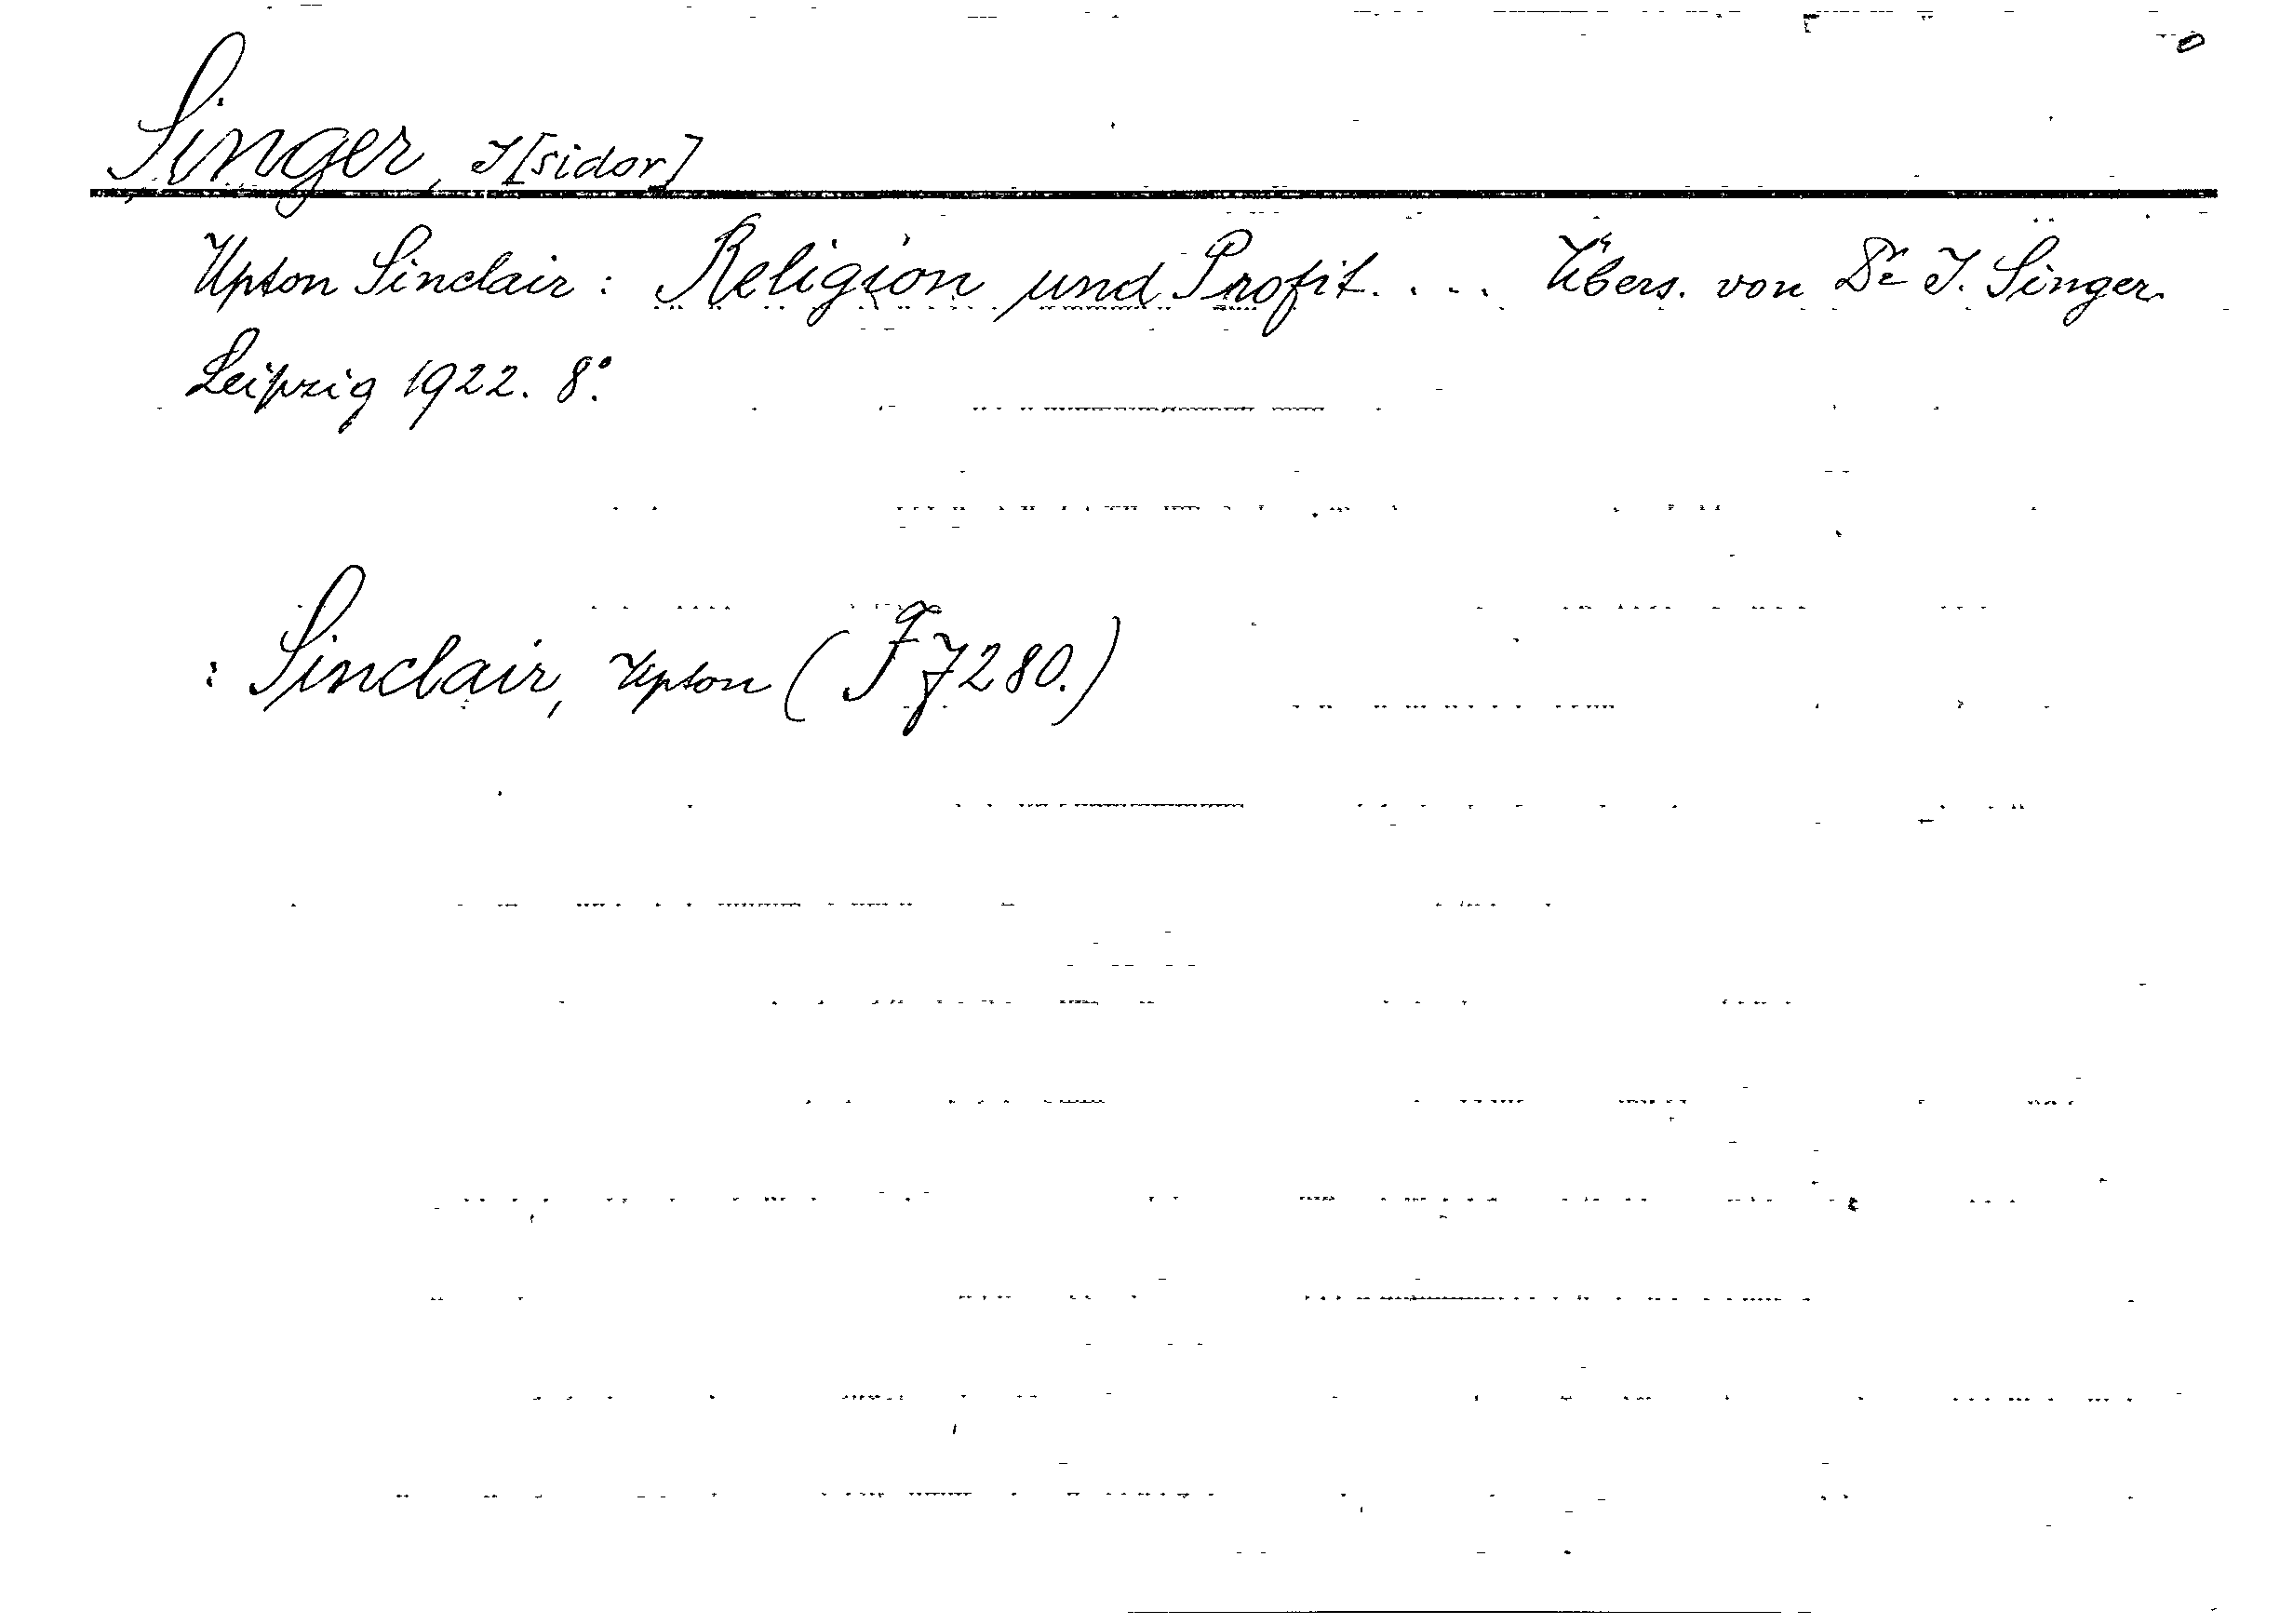 Singer, I[sidor]
Upton Sinclair: Religion und Profit. ... Übers. von Dr I. Singer.
Leipzig 1922. 8°.
: Sinclair, Upton (F 7280.)